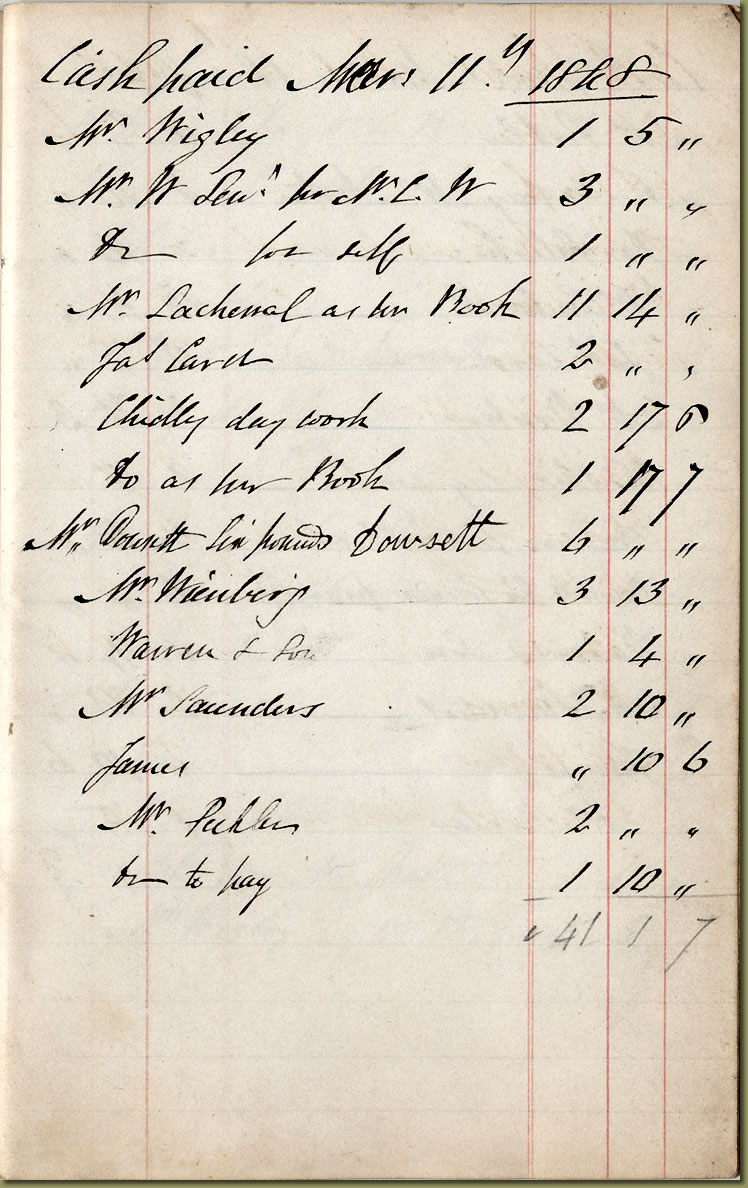 Cash paid Mar 11th 1848
Mr. Wigley 1 5 "
Mr. W for Mr. L. W 3 " "
Do for self 1 " "
Mr. Lachenal as per Book 11 14 "
Jas Caret 2 " "
Chidly day work 2 17 6
Do as per Book 1 17 7
Mr. Dowsett Six pounds Dowsett 6 " "
Mr. Weinberg 3 13 "
Warren & Son 1 4 "
Mr Saunders 2 10 "
James " 10 6
Mr. 2 " "
Do to pay 1 10 "
41 1 7